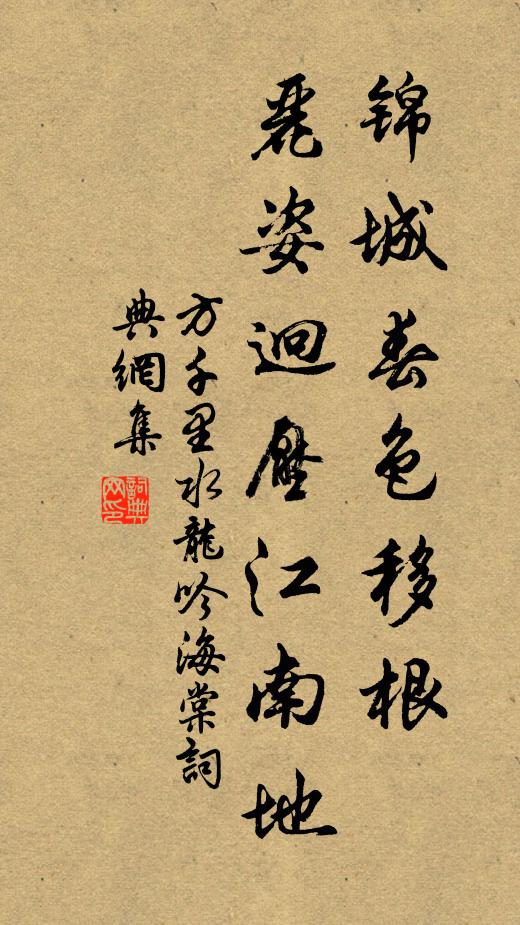 锦城春色移根
麗姿迥壓江南地
方千里水龍吟海棠詞
典網集
詞典網印